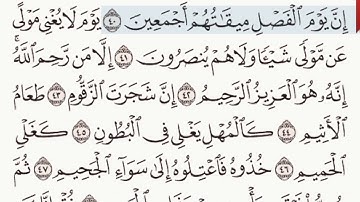 إِنَّ يَوْمَ ٱلْفَصْلِ مِيقَٰتُهُمْ أَجْمَعِينَ ٤٠ يَوْمَ لَا يُغْنِى مَوْلًى
عَن مَّوْلًى شَيْـًٔا وَلَا هُمْ يُنصَرُونَ ٤١ إِلَّا مَن رَّحِمَ ٱللَّهُ ۚ
إِنَّهُۥ هُوَ ٱلْعَزِيزُ ٱلرَّحِيمُ ٤٢ إِنَّ شَجَرَتَ ٱلزَّقُّومِ ٤٣ طَعَامُ
ٱلْأَثِيمِ ٤٤ كَٱلْمُهْلِ يَغْلِى فِى ٱلْبُطُونِ ٤٥ كَغَلْىِ
ٱلْحَمِيمِ ٤٦ خُذُوهُ فَٱعْتِلُوهُ إِلَىٰ سَوَآءِ ٱلْجَحِيمِ ٤٧ ثُمَّ